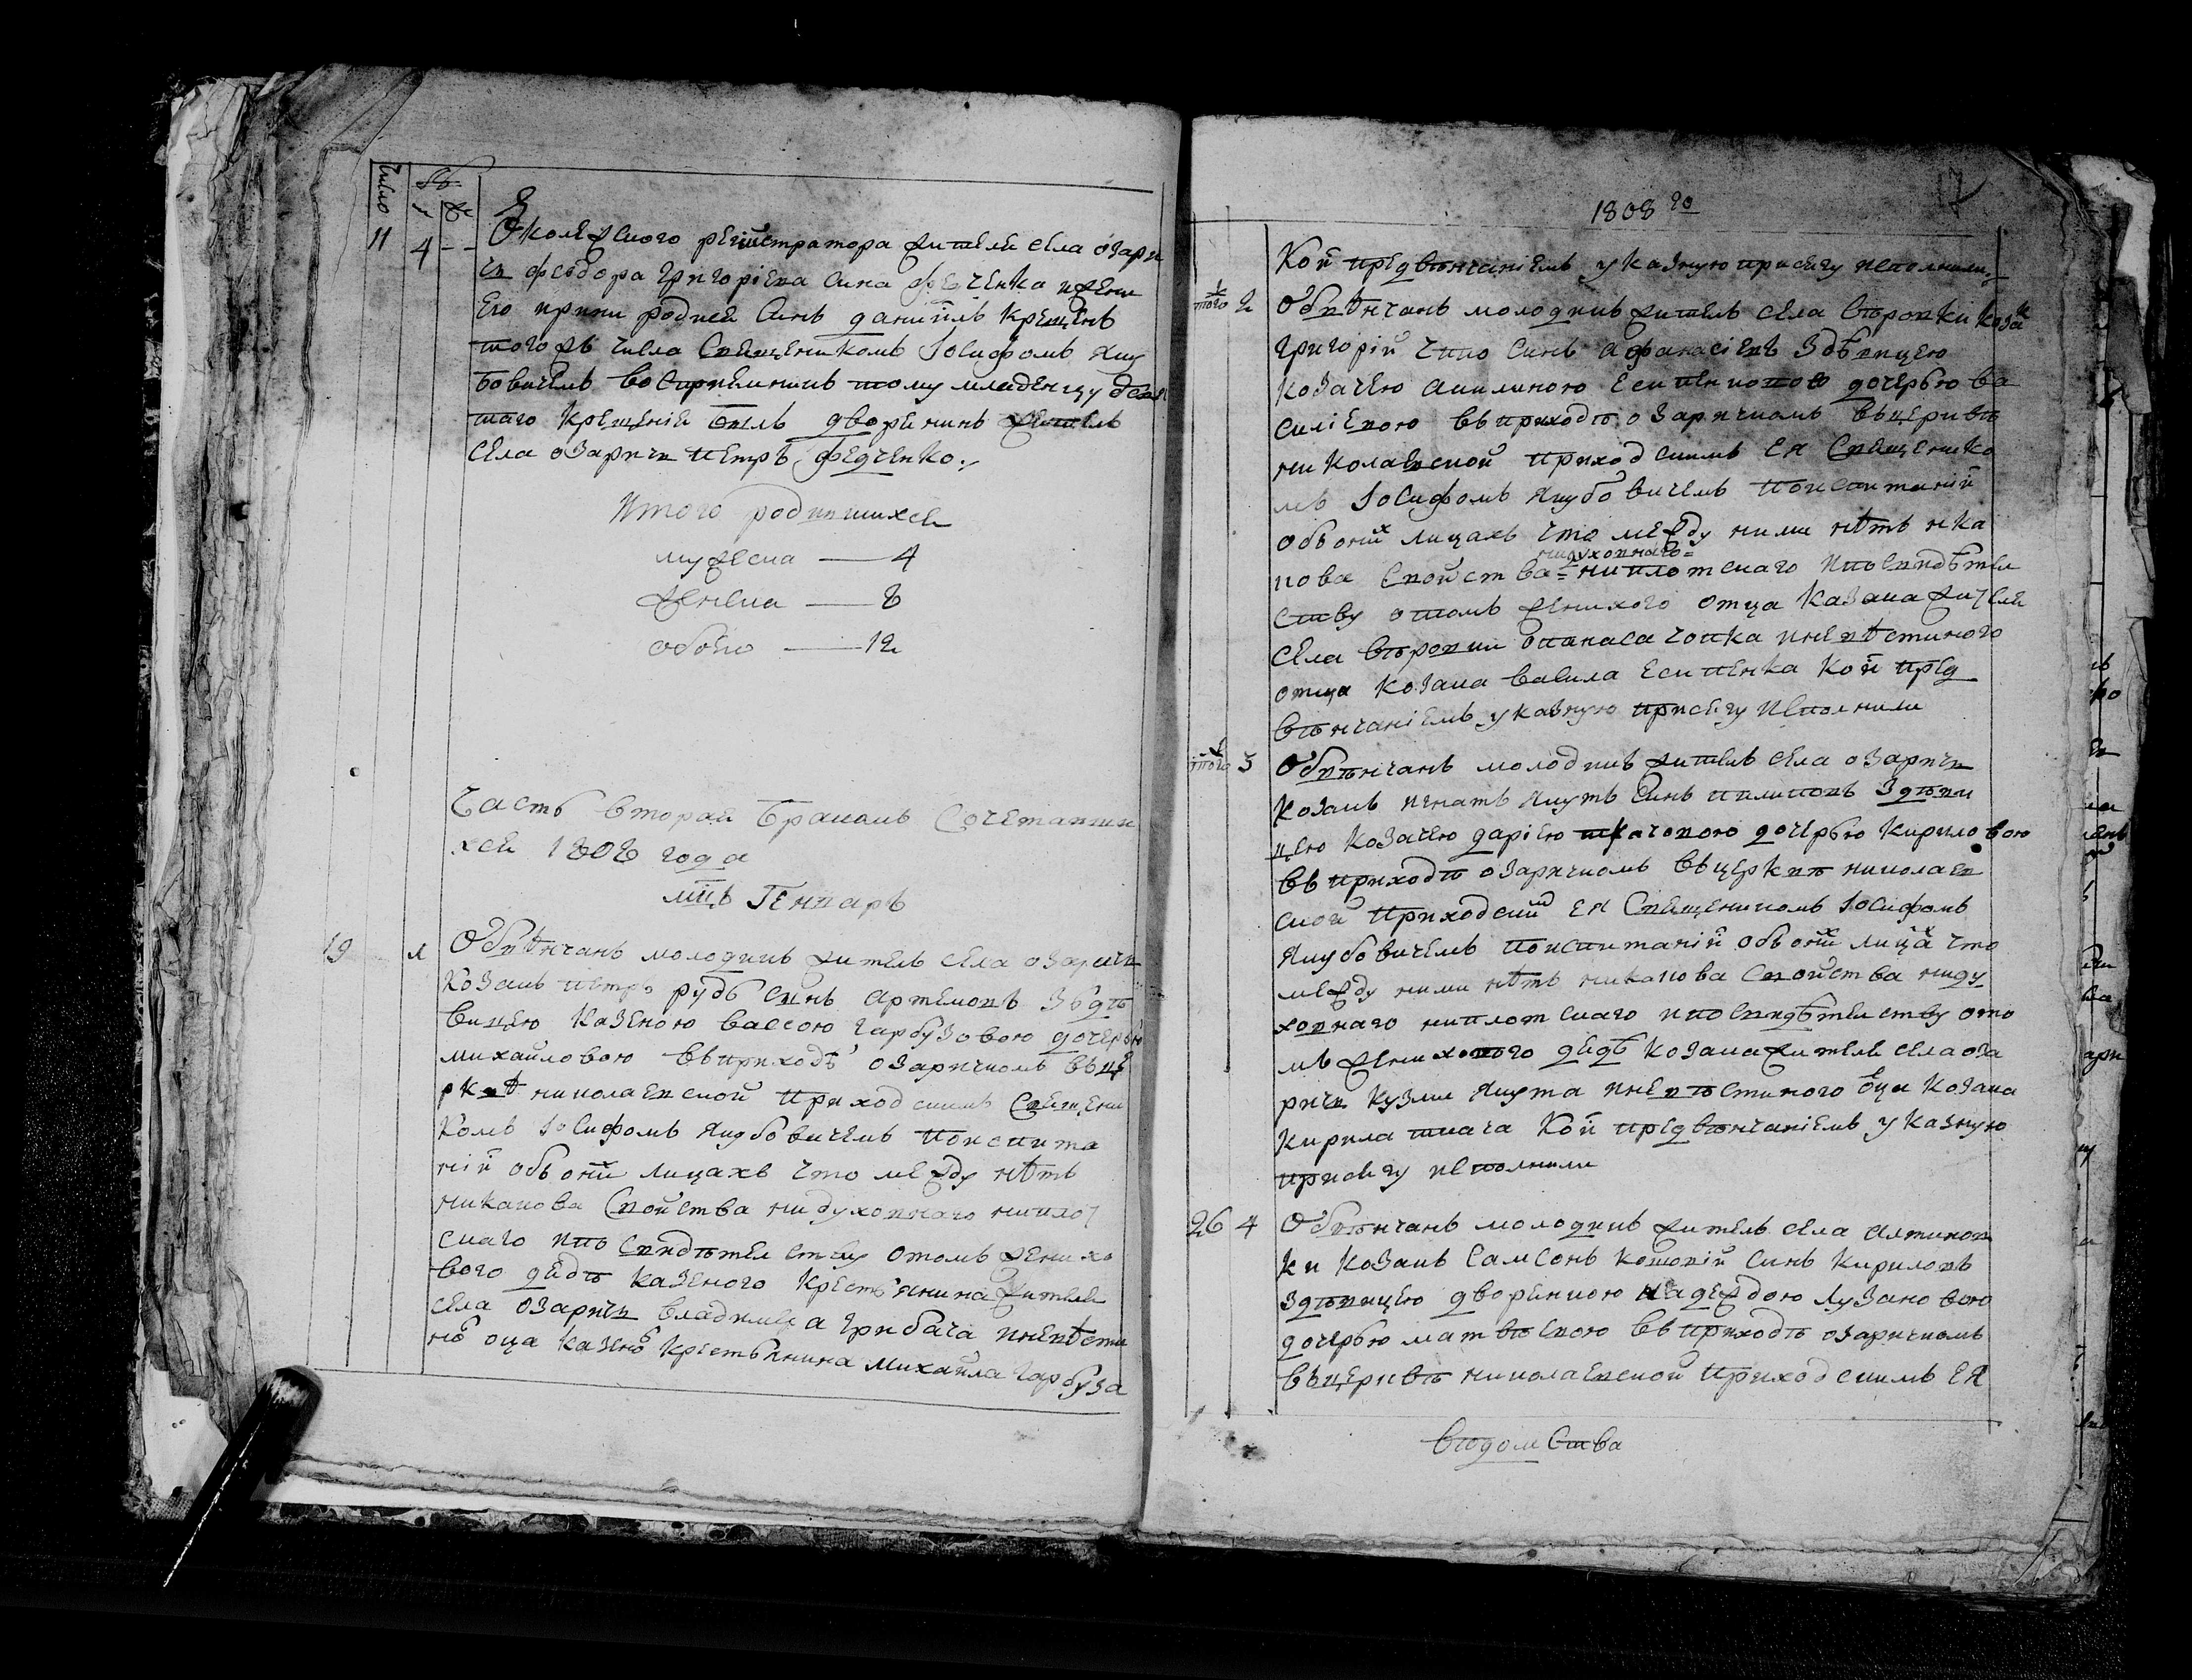 Число
11 4 - -
У колежского регистратора жителя села Озари
чъ Феодора Григоріева сина Федченка и жени
его ирини родися синъ даниилъ крещенъ
того жъ числа Священикомъ Іосифомъ Яку
бовичемъ восприемникъ тому младенцу
таго крещенія билъ дворянинъ житель
села озаричъ петръ федченко:
Итого родившихся
мужеска — 4
женска — 8
обоего — 12
Часть вторая бракомъ сочетавши
хся 1808 года
мцъ Генваръ
19 1 Обвѣнчанъ молодикъ житель села озаричъ
козакъ петръ рудь синъ артемовъ з дѣ
вицею казеною вассою гарбузовою дочерю
михайловою въ приходѣ озаричкомъ въ це
рквѣ николаевской приходскимъ Священи
комъ Іосифомъ Якубовичемъ по испита
ніи объ оних лицахъ что между нѣтъ
никакова свойства ни духовнаго ни плот
скаго и по свидѣтелству о томъ женихо
вого дядѣ казеного крестьянина жителя
села озаричъ владимера грибача и невѣсти
ного оца казеного крестьянина михайла гарбуза
17
1808 го
кои предъ вѣнчаніемъ указную присягу исполнили
того 2 Обвѣнчанъ молодикъ житель села вѣровки козакъ
григорій чпко синъ афанасіевъ з дѣвицею
козачею акилиною есипенковою дочерью ва
силіевою въ приходѣ озаричкомъ въ церквѣ
николаевской приходскимъ ея Священико
мъ Іосифомъ Якубовичемъ по испитаніи
объ оних лицахъ что между ними нѣтъ ника
кова свойства ни духовнаго ни плотскаго и по свидѣтел
ству о томъ женихого отца казака жителя
села вѣровки опанаса чопка и невѣстиного
отца козака васила есипенка кои пред
вѣнчаніемъ указную присягу исполнили
того 3 Обвѣнчанъ молодикъ житель села озаричъ
козакъ игнатъ якутъ синъ пилиповъ з дѣви
цею козачею даріею ткачовою дочерью кириловою
въ приходѣ озаричкомъ въ церквѣ николаев
ской приходским ея Священикомъ Іосифомъ
Якубовичемъ по испитаніи объ оних лицах что
между ними нѣтъ никакова свойства ни ду
ховнаго ни плотскаго и по свидѣтелству о то
мъ жениховаго дядѣ козака жителя села оза
ричъ кузми якута и невѣстиного оца козака
кирила ткача кои предъ вѣнчаніемъ указную
присягу исполнили
26 4 Обвѣнчанъ молодикъ житель села алтинов
ки козакъ самсонъ синъ кириловъ
з дѣвицею дворянкою надеждою лузановою
дочерью матвѣевою въ приходѣ озаричкомъ
въ церквѣ николаевской приходскимъ ея
вѣдомства